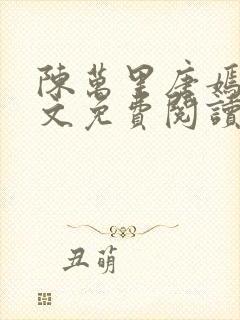 陳萬里唐嫣
文免費閱讀
丑萌